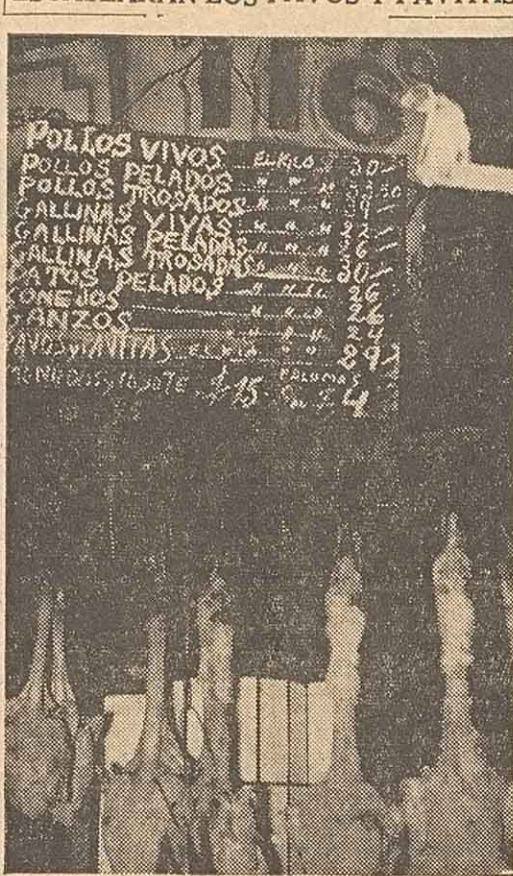 LOS PAVOS Y PAVITAS
POLLOS VIVOS EL KILO $ 30
POLLOS PELADOS " " " 33.50
POLLOS TROSADOS " " "
GALLINAS VIVAS " " "
GALLINAS PELADAS " " " 26
GALLINAS TROSADAS 30
PATOS PELADOS " " " 26
CONEJOS 26
GANZOS " " " 24
PAVOS y PAVITAS EL KILO 29
15 PALOMAS 4